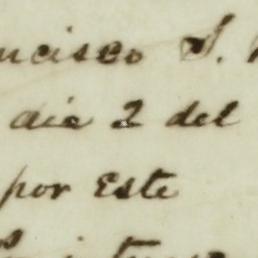 ncisco S.
dia 2 del
por Este